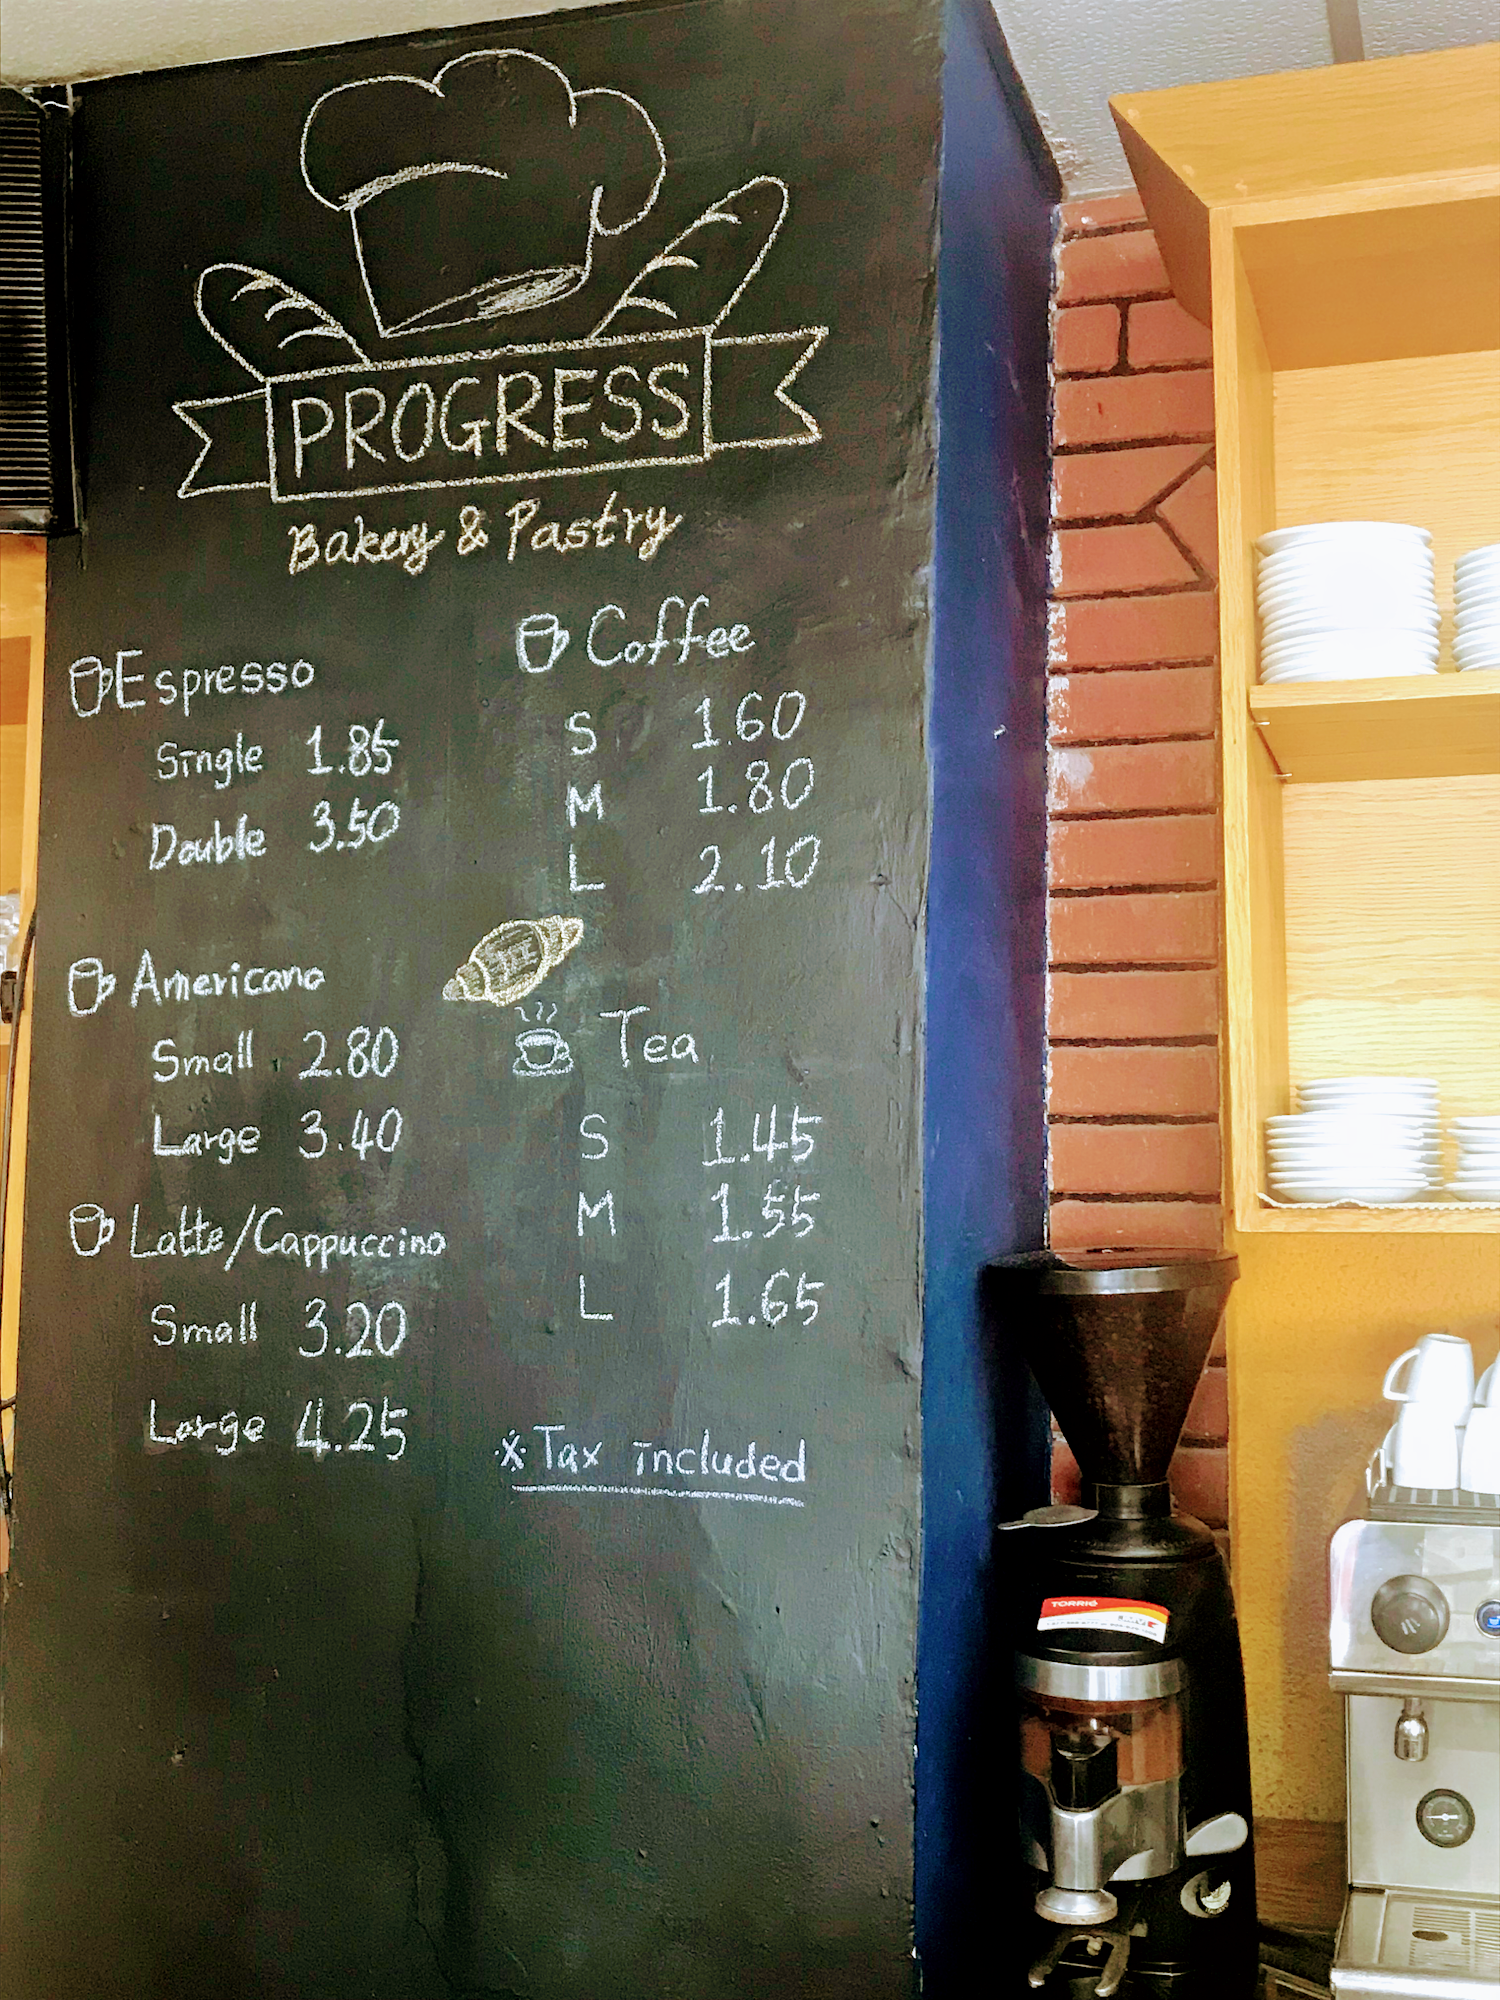 PROGRESS
Bakery & Pastry
Espresso
Single 1.85
Double 3.50
Americano
Small 2.80
Large 3.40
Latte/Cappuccino
Small 3.20
Large 4.25
Coffee
S 1.60
M 1.80
L 2.10
Tea
S 1.45
M 1.55
L 1.65
※ Tax included
TORRIÉ